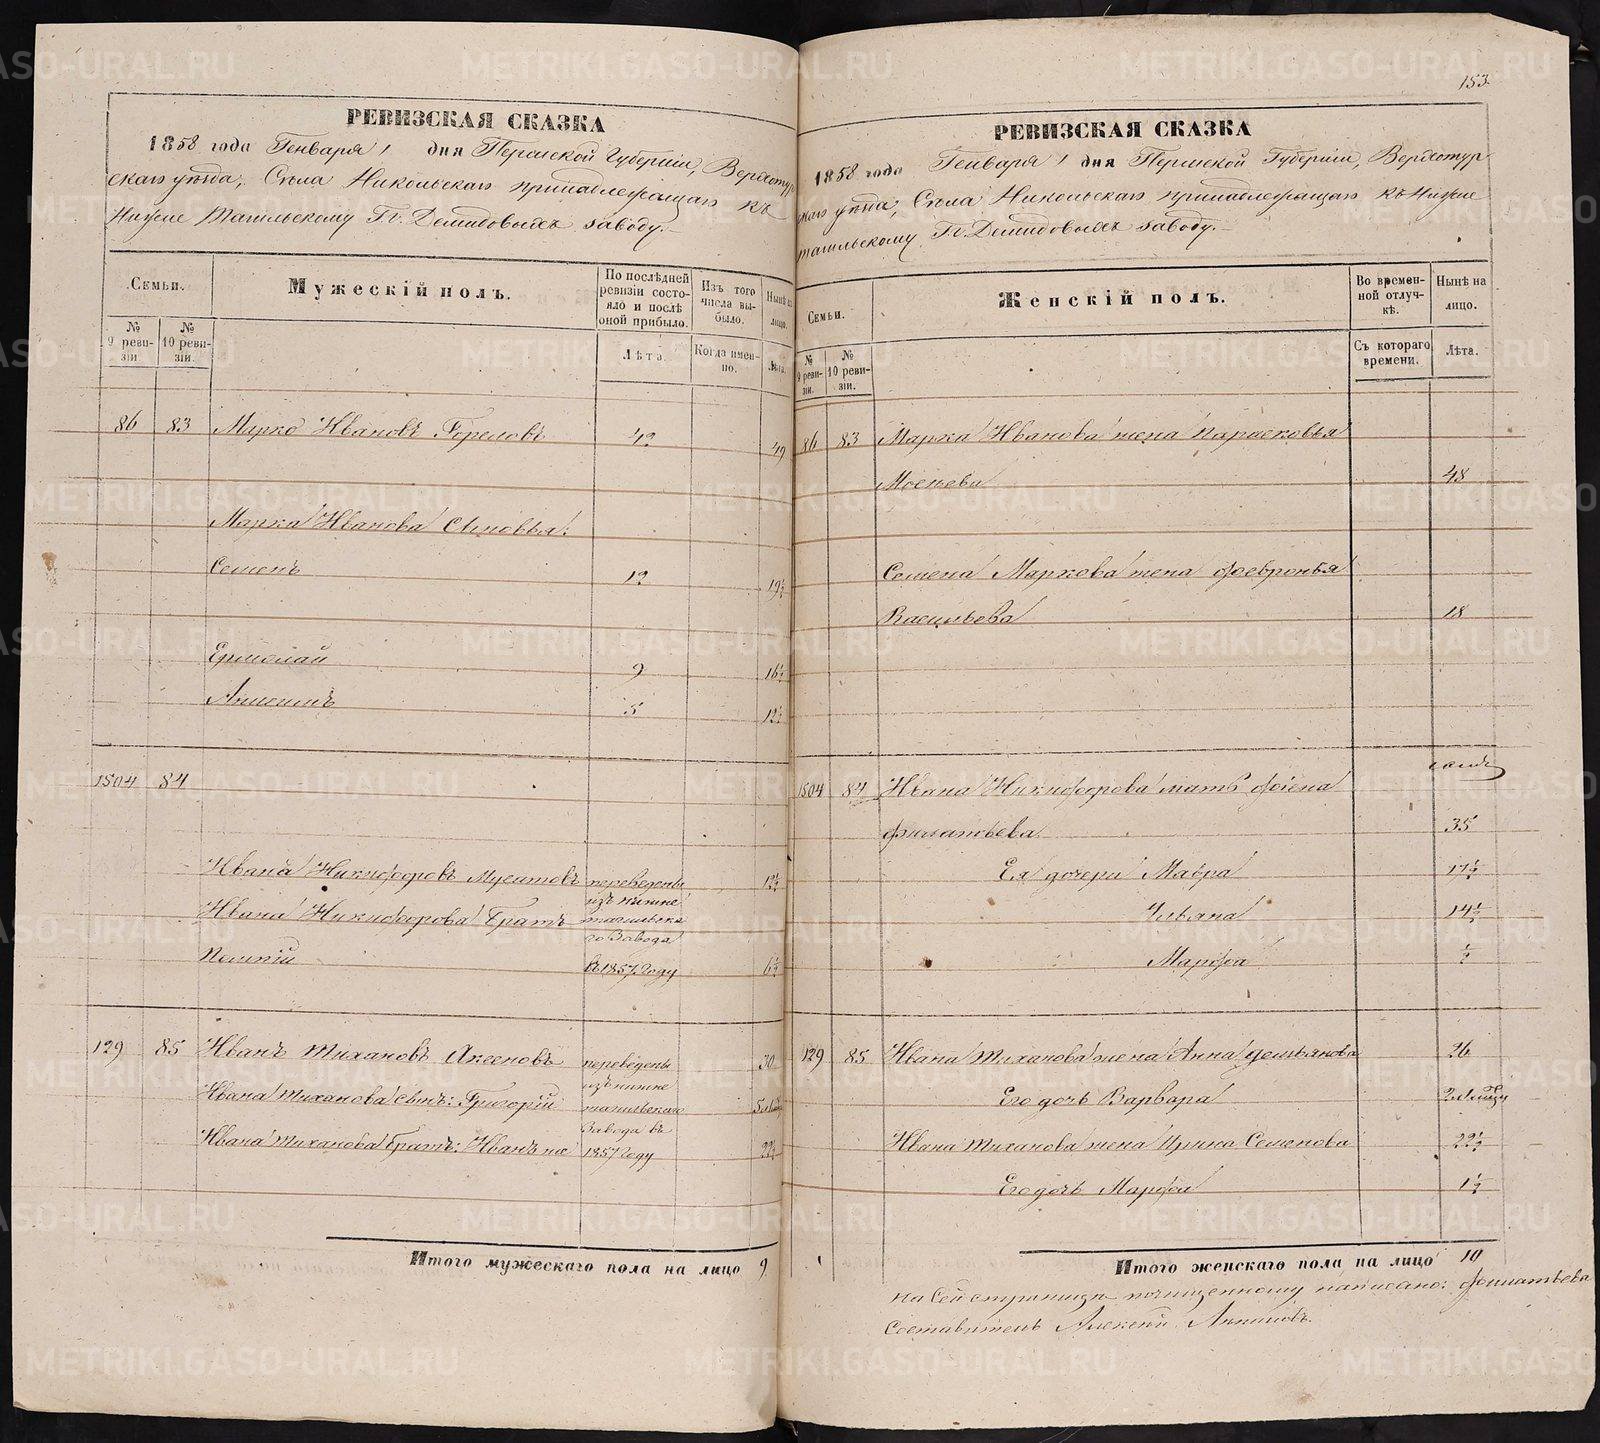 РЕВИЗСКАЯ СКАЗКА
1858 года Генваря 1 дня Пермской Губернии, Верхотур
скаго уѣзда, Села Никольскаго принадлежащаго къ
Нижне Тагильскому Гг. Демидовыхъ заводу.
Семьи.
Мужескій полъ.
По послѣдней ревизіи состояло и послѣ оной прибыло.
Изъ того числа выбыло.
Нынѣ на лицо.
№ 9 ревизіи
№ 10 ревизіи.
Лѣта.
Когда именно.
Лѣта.
86 83 Марко Ивановъ Гореловъ 42 49
Марка Иванова Сыновья:
Семенъ 12 19½
Ермолай 9 16½
Анисимъ 5 12½
1504 84
Ивана Никифоровъ Мусатовъ переведены 12½
изъ нижне
Ивана Никифорова Братъ тагильска
го Завода
въ 1857 году 6½
129 85 Иванъ Тихановъ Аксеновъ переведены 30
изъ нижне
Ивана Тиханова сынъ: Григорій тагильскаго
Завода въ
Ивана Тиханова братъ: Иванъ же 1857 году 22½
Итого мужескаго пола на лицо 9
153.
РЕВИЗСКАЯ СКАЗКА
1858 года Генваря 1 дня Пермской Губерніи, Верхотур
скаго уѣзда, Села Никольскаго принадлежащаго къ Нижне
тагильскому Гг. Демидовыхъ заводу.
Семьи.
Женскій полъ.
Во временной отлучкѣ.
Нынѣ на лицо.
№ 9 ревизіи.
№ 10 ревизіи.
Съ котораго времени.
Лѣта.
86 83 Марка Иванова жена Парасковья
Мосѣева 48
Семена Маркова жена Февронья
Васильева 18
1504 84 Ивана Никифорова мать
Филатьева 35
Ея дочери Мавра 17½
Ульяна 14½
Марфа ½
129 85 Ивана Тиханова жена Анна 26
Его дочь Варвара
Ивана Тиханова жена Ирина Семенова 22½
Его дочь Марфа 1½
Итого женскаго пола на лицо 10
на Сей страницѣ почищенному написано: Филатьева
Составитель Алексѣй
METRIKI.GASO-URAL.RU